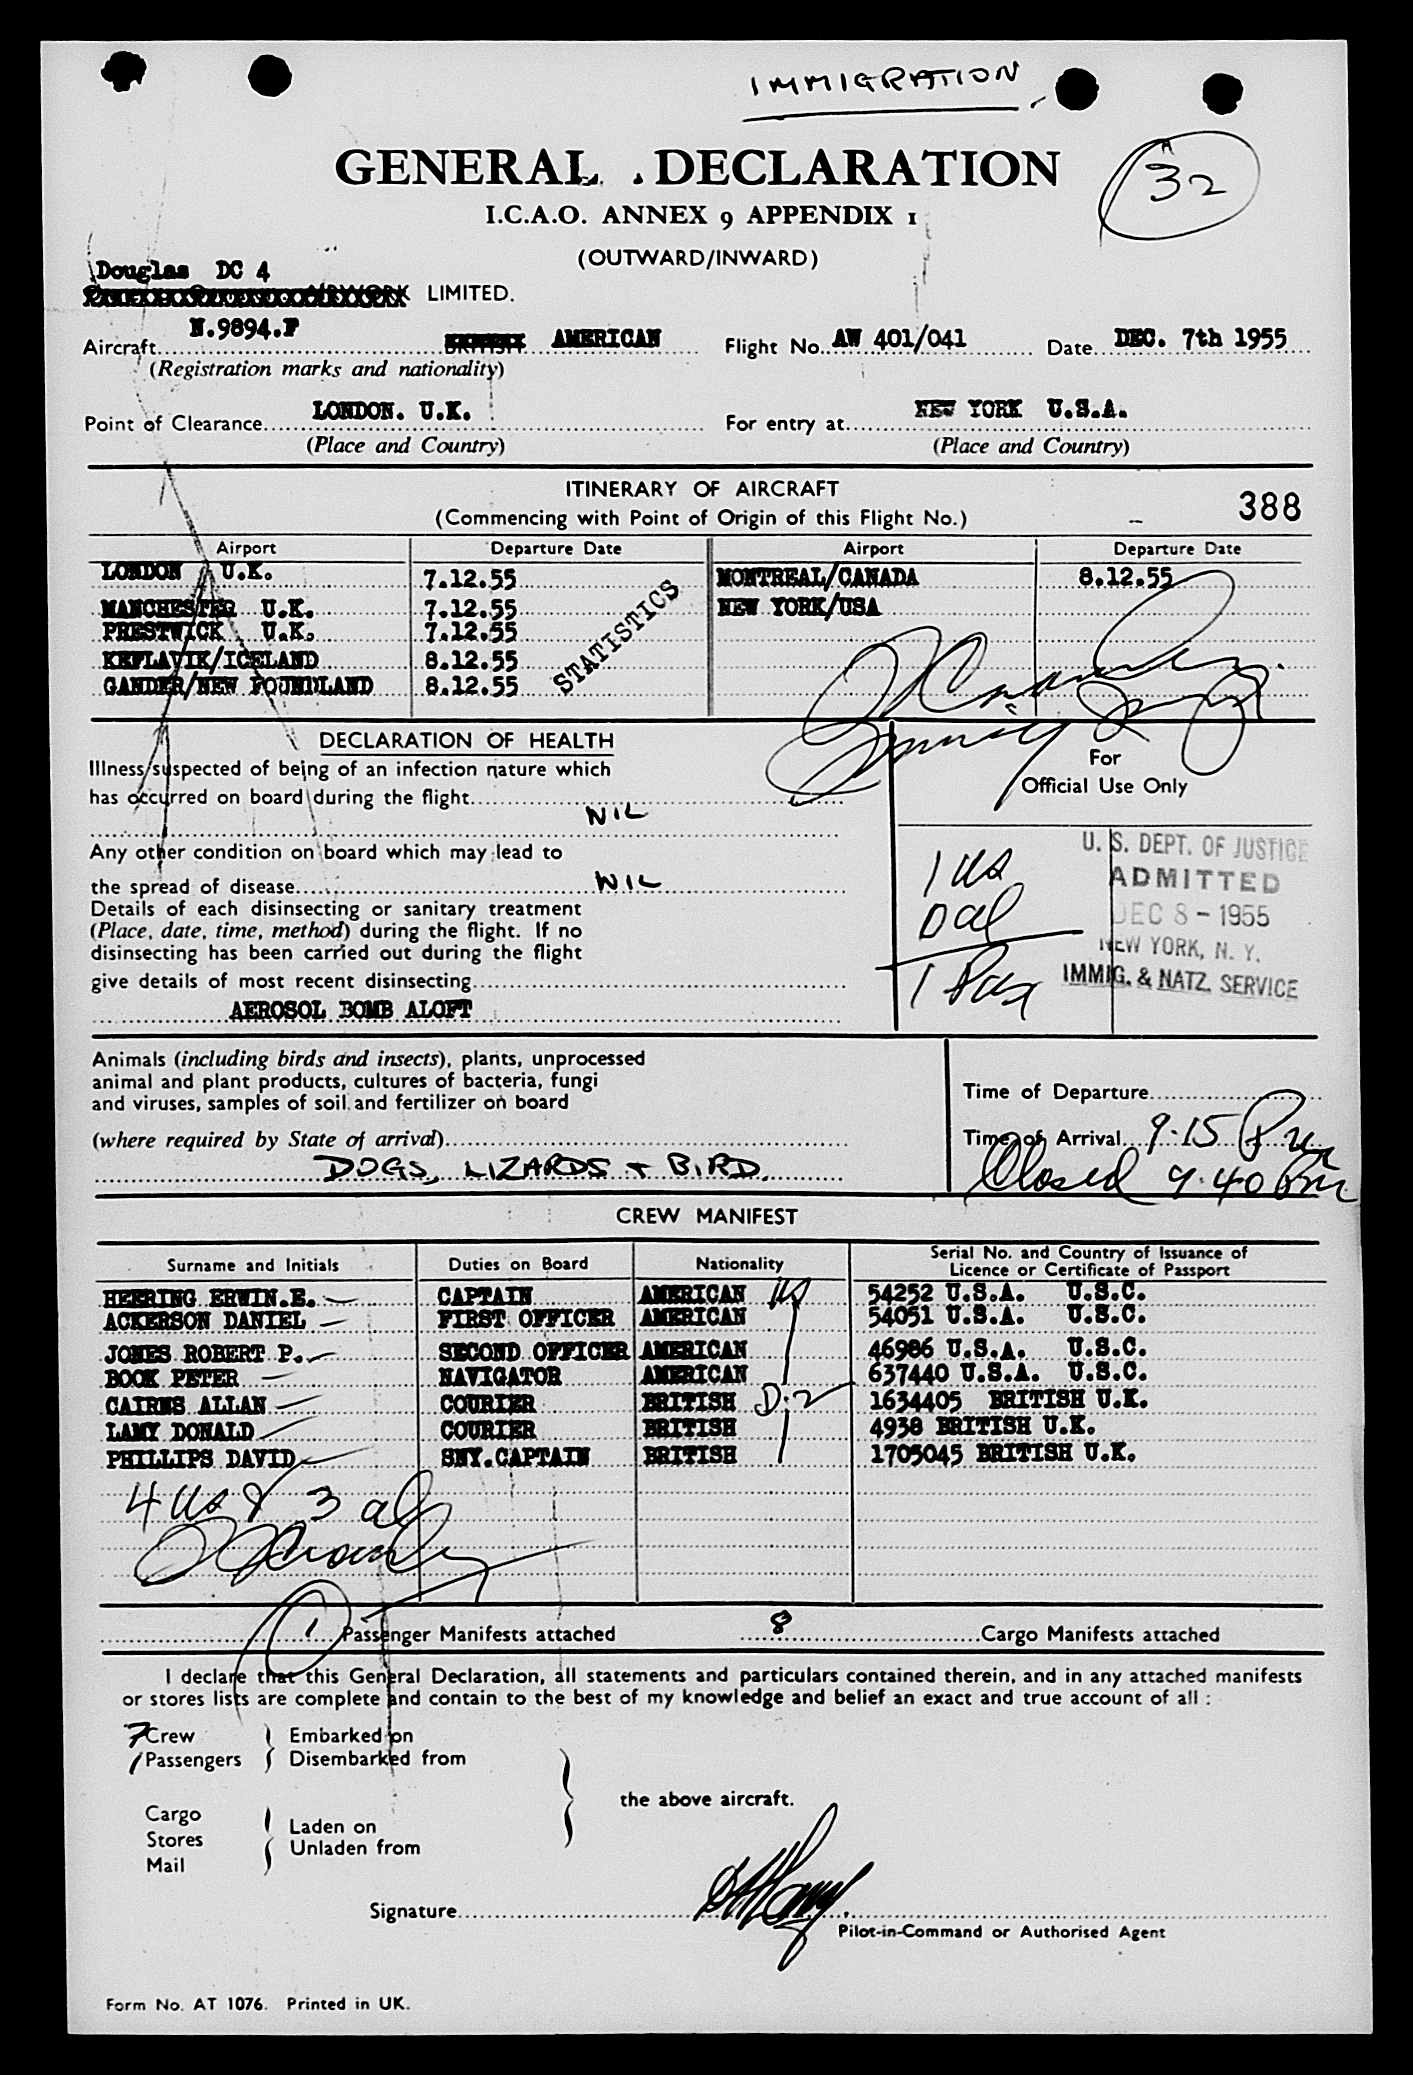 IMMIGRATION
GENERAL DECLARATION
32
I.C.A.O. ANNEX 9 APPENDIX 1
(OUTWARD/INWARD)
Douglas DC 4
AIRWORK LIMITED.
N.9894.F
Aircraft BRITISH AMERICAN Flight No. AW 401/041 Date DEC. 7th 1955
(Registration marks and nationality)
Point of Clearance LONDON. U.K. For entry at NEW YORK U.S.A.
(Place and Country) (Place and Country)
ITINERARY OF AIRCRAFT
(Commencing with Point of Origin of this Flight No.) 388
Airport Departure Date Airport Departure Date
LONDON U.K. 7.12.55 MONTREAL/CANADA 8.12.55
MANCHESTER U.K. 7.12.55 NEW YORK/USA
PRESTWICK U.K. 7.12.55
KEFLAVIK/ICELAND 8.12.55
GANDER/NEW FOUNDLAND 8.12.55
STATISTICS
DECLARATION OF HEALTH
Illness suspected of being of an infection nature which
has occurred on board during the flight
NIL
For
Official Use Only
Any other condition on board which may lead to
the spread of disease NIL
Details of each disinsecting or sanitary treatment
(Place, date, time, method) during the flight. If no
disinsecting has been carried out during the flight
give details of most recent disinsecting
AEROSOL BOMB ALOFT
1 US
0 al
1 Pax
U. S. DEPT. OF JUSTICE
ADMITTED
DEC 8 - 1955
NEW YORK, N. Y.
IMMIG. & NATZ. SERVICE
Animals (including birds and insects), plants, unprocessed
animal and plant products, cultures of bacteria, fungi
and viruses, samples of soil and fertilizer on board
(where required by State of arrival)
DOGS, LIZARDS + BIRD.
Time of Departure
Time of Arrival 9.15 Pm
Closed 9.40 Pm
CREW MANIFEST
Surname and Initials Duties on Board Nationality Serial No. and Country of Issuance of
Licence or Certificate of Passport
HEERING ERWIN.E. CAPTAIN AMERICAN US 54252 U.S.A. U.S.C.
ACKERSON DANIEL FIRST OFFICER AMERICAN 54051 U.S.A. U.S.C.
JONES ROBERT P. SECOND OFFICER AMERICAN 46986 U.S.A. U.S.C.
BOOK PETER NAVIGATOR AMERICAN 637440 U.S.A. U.S.C.
CAIRNS ALLAN COURIER BRITISH D-2 1634405 BRITISH U.K.
LAMY DONALD COURIER BRITISH 4938 BRITISH U.K.
PHILLIPS DAVID SNY.CAPTAIN BRITISH 1705045 BRITISH U.K.
4 US & 3 al
1 Passenger Manifests attached 8 Cargo Manifests attached
I declare that this General Declaration, all statements and particulars contained therein, and in any attached manifests
or stores lists are complete and contain to the best of my knowledge and belief an exact and true account of all :
7 Crew Embarked on
1 Passengers Disembarked from
the above aircraft.
Cargo
Stores
Mail
Laden on
Unladen from
Signature
Pilot-in-Command or Authorised Agent
Form No. AT 1076. Printed in UK.